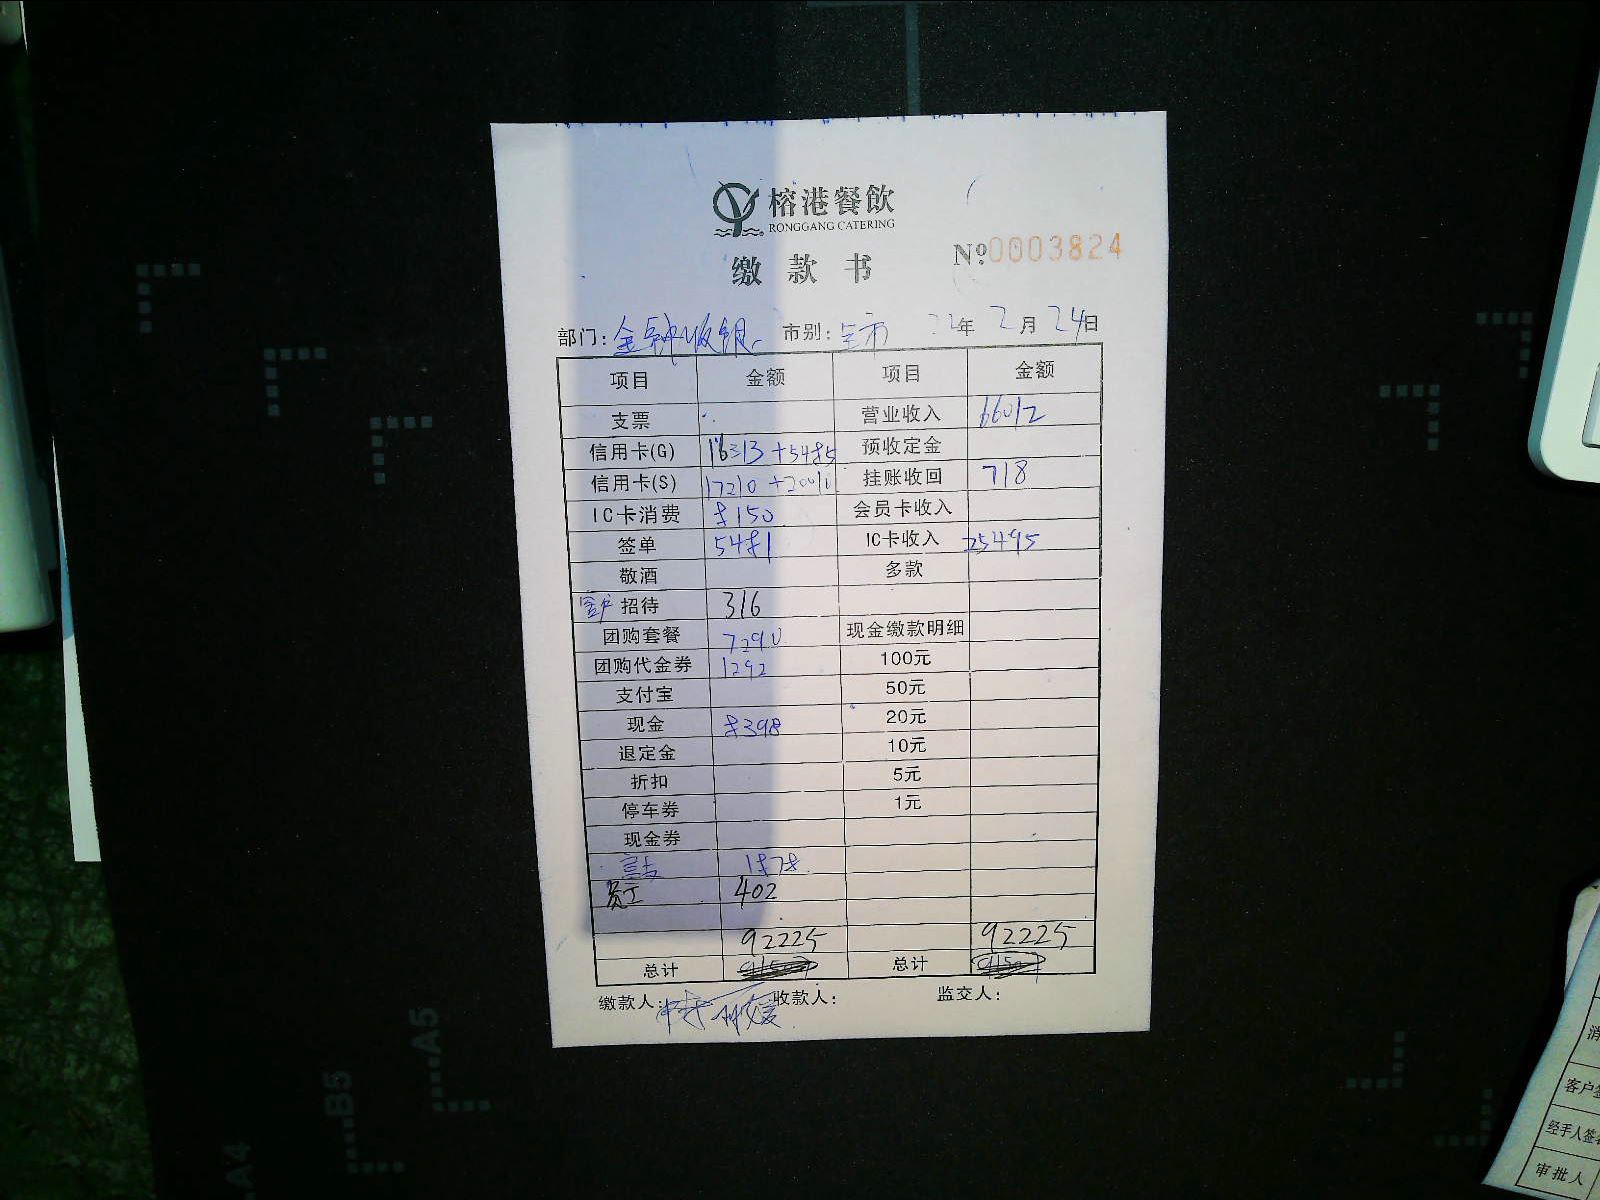 榕港餐飲
RONGGANG CATERING
№0003824
缴款书
部门: 金钟收银 市别: 全市 22年 2月 24日
项目 金额 项目 金额
支票 营业收入 66012
信用卡(G) 16313+5485 预收定金
信用卡(S) 17210 挂账收回 718
IC卡消费 8150 会员卡收入
签单 5481 IC卡收入 25495
敬酒 多款
客户 招待 316
团购套餐 7290 现金缴款明细
团购代金券 1292 100元
支付宝 50元
现金 8398 20元
退定金 10元
折扣 5元
停车券 1元
现金券
1878
员工 402
92225 92225
总计 总计
缴款人: 收款人: 监交人:
A5
B5
A4
消
客户签
经手人签
审批人